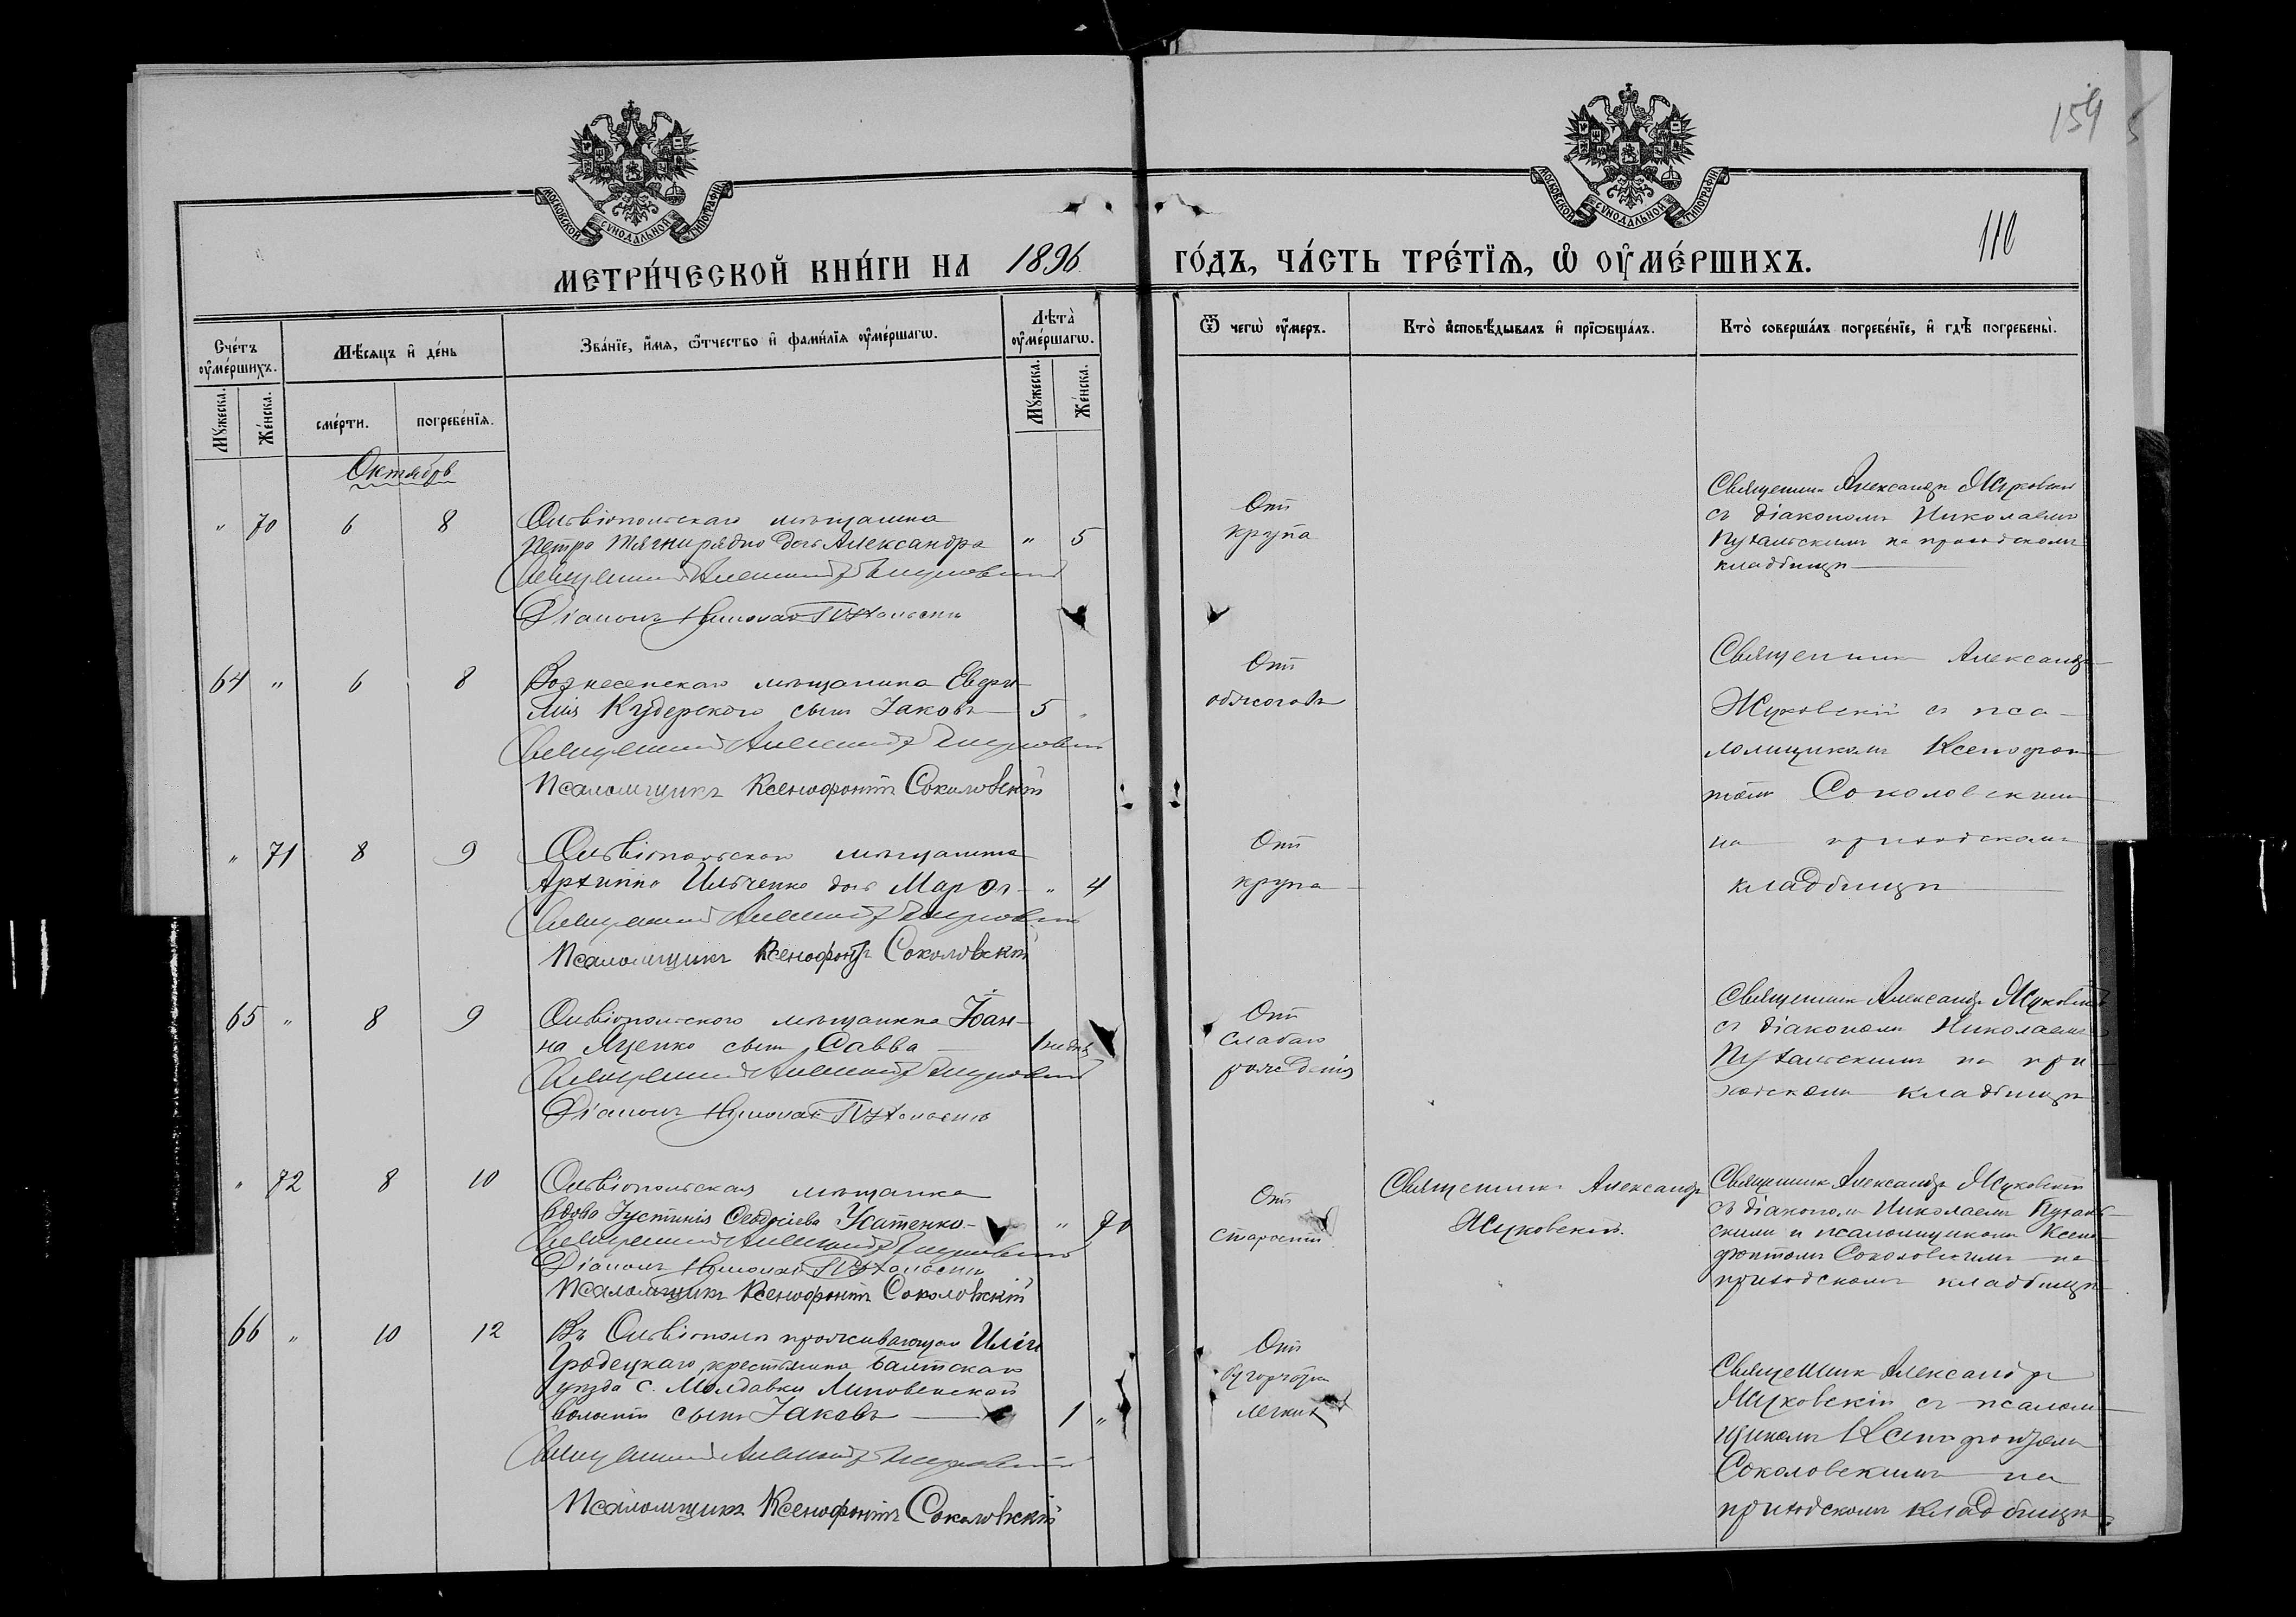 154
110
МОСКОВСКОЙ СѴНОДАЛЬНОЙ ТИПОГРАФІИ
МОСКОВСКОЙ СѴНОДАЛЬНОЙ ТИПОГРАФІИ
МЕТРИ́ЧЕСКОЙ КНИ́ГИ НА 1896 ГО́ДЪ, ЧА́СТЬ ТРЕ́ТЇѦ, Ѡ ОУМЕ́РШИХЪ.
Сче́тъ оуме́ршихъ.
Мѣ́сяцъ и де́нь
Зва́нїе, и́мѧ, ѻ́тчество и фами́лїѧ оуме́ршагѡ.
Лѣта̀ оуме́ршагѡ.
Ѿ чегѡ̀ оу́меръ.
Кто̀ исповѣ́дывалъ и прїѡбща́лъ.
Кто̀ соверша́лъ погребе́нїе, и гдѣ̀ погребены̀.
Мꙋ́жеска.
Же́нска.
сме́рти.
погребе́нїѧ.
Мꙋ́жеска.
Же́нска.
Октябрь
" 70 6 8
Ольвіопольскаго мѣщанина
Петра Тягнирядно дочь Александра " 5
Священникъ Александръ Жуховскій
Діаконъ Николай Пухальскій
Отъ
крупа
Священникъ Александръ Жуковскій
съ діакономъ Николаемъ
Пухальскимъ на приходскомъ
кладбищѣ
64 " 6 8
Вознесенскаго мѣщанина Евѳи-
мія Кудерского сынъ Іаковъ 5 "
Священникъ Александръ Жуховскій
Псаломщикъ Ксенофонтъ Соколовскій
Отъ
обжоговъ
Священникъ Александръ
Жуховскій съ пса-
ломщикомъ Ксенофон-
томъ Соколовскимъ
на приходскомъ
кладбищѣ
" 71 8 9
Ольвіопольскаго мѣщанина
Архиппа Ильченко дочь " 4
Священникъ Александръ Жуховскій
Псаломщикъ Ксенофонтъ Соколовскій
Отъ
крупа
65 " 8 9
Ольвіопольского мѣщанина Іоан-
на Яценко сынъ Савва 1 недѣл
Священникъ Александръ Жуховскій
Діаконъ Николай Пухальскій
Отъ
слабаго
рожденія
Священникъ Александръ Жуковскій
съ діакономъ Николаемъ
Пухальскимъ на при-
ходскомъ кладбищѣ
" 72 8 10
Ольвіопольская мѣщанка
вдова Іустинія Ѳеодосіева Усатенко " 70
Священникъ Александръ Жуховскій
Діаконъ Николай Пухальскій
Псаломщикъ Ксенофонтъ Соколовскій
Отъ
старости
Священникъ Александръ
Жуковскій.
Священникъ Александръ Жуковскій
съ діакономъ Николаемъ Пухаль-
скимъ и псаломщикомъ Ксено-
фонтомъ Соколовскимъ на
приходскомъ кладбищѣ
66 " 10 12
Въ Ольвіополѣ проживающаго Иліи
Гродецкаго крестьянина Балтскаго
уѣзда с. Молдавки Липовенской
волости сынъ Іаковъ 1 "
Священникъ Александръ Жуховскій
Псаломщикъ Ксенофонтъ Соколовскій
Отъ
бугорчатки
легкихъ
Священникъ Александръ
Жуховскій съ псалом-
щикомъ Ксенофонтомъ
Соколовскимъ на
приходскомъ кладбищѣ